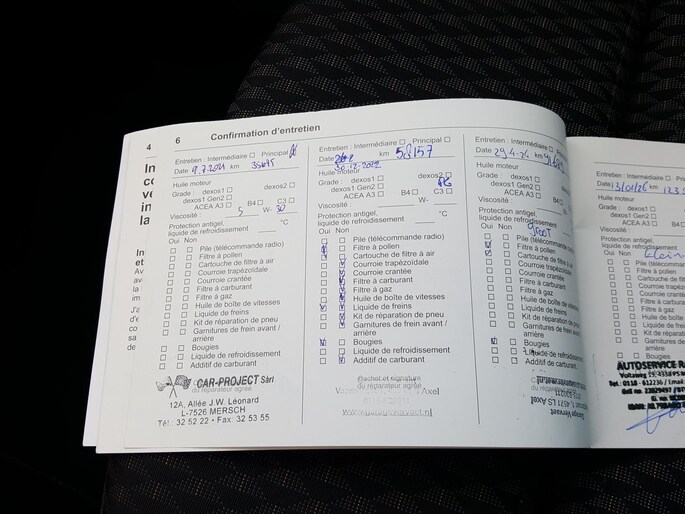 4
6 Confirmation d'entretien
In
co
ve
in
la
In
et
Av
av
la
im
J'a
d'
co
sa
de
Entretien : Intermédiaire Principal
Date 9.7.2021 km
Huile moteur
Grade : dexos1 dexos2
dexos1 Gen2
ACEA A3 B4 C3
Viscosité : 5 W- 30
Protection antigel,
liquide de refroidissement °C
Oui Non
Pile (télécommande radio)
Filtre à pollen
Cartouche de filtre à air
Courroie trapézoïdale
Courroie crantée
Filtre à carburant
Filtre à gaz
Huile de boîte de vitesses
Liquide de freins
Kit de réparation de pneu
Garnitures de frein avant /
arrière
Bougies
Liquide de refroidissement
Additif de carburant
CAR-PROJECT Sàrl
du réparateur agréé
12A, Allée J.W. Léonard
L-7526 MERSCH
Tél.: 32 52 22 • Fax: 32 53 55
Entretien : Intermédiaire Principal
Date 30-12-2022 km 58157
Huile moteur
Grade : dexos1 dexos2
dexos1 Gen2
ACEA A3 B4 C3
Viscosité : W-
Protection antigel,
liquide de refroidissement °C
Oui Non
Pile (télécommande radio)
Filtre à pollen
Cartouche de filtre à air
Courroie trapézoïdale
Courroie crantée
Filtre à carburant
Filtre à gaz
Huile de boîte de vitesses
Liquide de freins
Kit de réparation de pneu
Garnitures de frein avant /
arrière
Bougies
Liquide de refroidissement
Additif de carburant
Cachet et signature
du réparateur agréé
Axel
Entretien : Intermédiaire Principal
Date 29-4-24 km
Huile moteur
Grade : dexos1 dexos2
dexos1 Gen2
ACEA A3 B4 C3
Viscosité : W-
Protection antigel,
liquide de refroidissement
Oui Non
Pile (télécommande radio)
Filtre à pollen
Cartouche de filtre à air
Courroie trapézoïdale
Courroie crantée
Filtre à carburant
Filtre à gaz
Huile de boîte de vitesses
Liquide de freins
Kit de réparation de pneu
Garnitures de frein avant /
arrière
Bougies
Liquide de refroidissement
Additif de carburant
Garage Vervaet
4571 LS Axel
Entretien : Intermédiaire
Date km
Huile moteur
Grade : dexos1
dexos1 Gen2
ACEA A3
Viscosité :
Protection antigel,
liquide de refroidissement
Oui Non
Pile (télécommande
Filtre à pollen
Cartouche de filtre
Courroie trapézoïdale
Courroie crantée
Filtre à carburant
Filtre à gaz
Huile de boîte de
Liquide de freins
Kit de réparation
Garnitures de
arrière
Bougies
Liquide de
Additif de
AUTOSERVICE